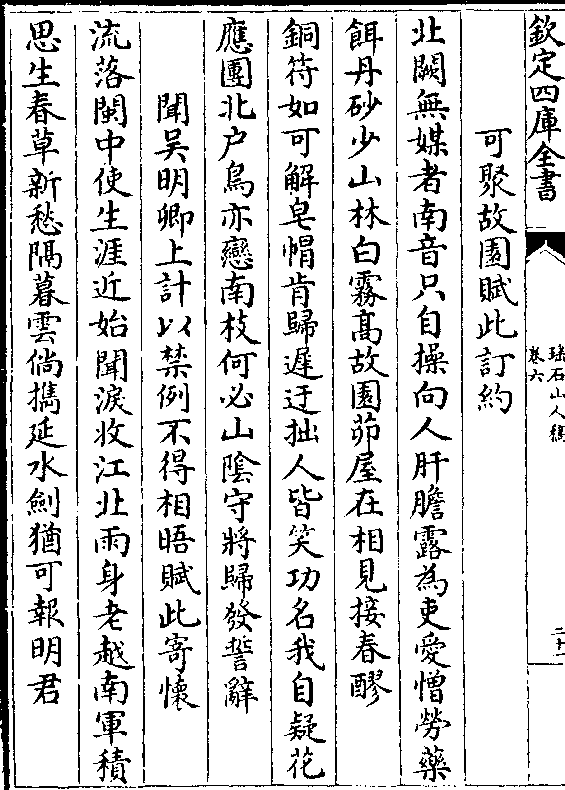 欽定四庫全書
瑤石山人稿
卷六
二十一
可聚故園賦此訂約
北闕無媒者南音只自操向人肝膽露為吏愛憎勞藥
餌丹砂少山林白霧髙故園茆屋在相見接春醪
銅符如可解皂㡌肯歸遲迂拙人皆笑功名我自疑花
應團北户鳥亦戀南枝何必山隂守將歸發誓辭
聞吴明卿上計以禁例不得相晤賦此寄懷
流落閩中使生涯近始聞淚收江北雨身老越南軍積
思生春草新愁隔暮雲倘擕延水劍猶可報明君